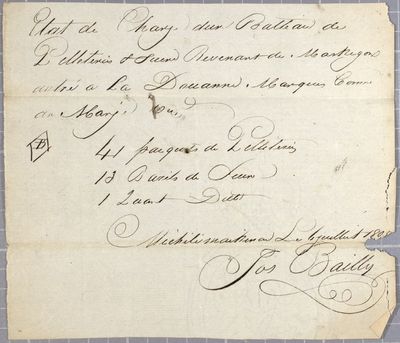 Etat de Charg. d'un Batteau de
Pelleteries & Sucre Revenant de Maskegon
entré a La Douanne Marques Comme
en Marj.
B
41 paquets de Pelleteries
13 Barils de Sucre
1 Quart Ditto
Michilimackinac Le 6 juillet
Jos Bailly